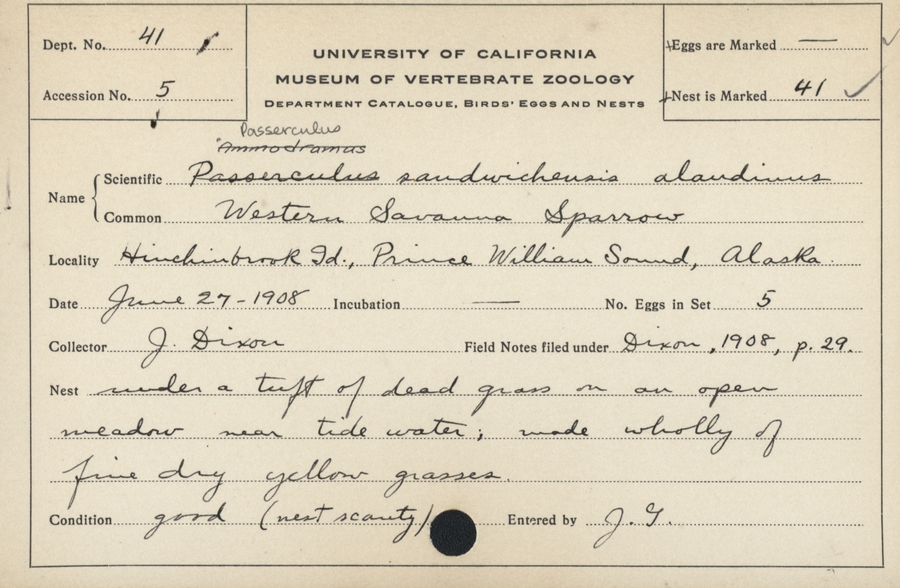 Dept. No. 41
Accession No. 5
UNIVERSITY OF CALIFORNIA
MUSEUM OF VERTEBRATE ZOOLOGY
DEPARTMENT CATALOGUE, BIRDS' EGGS AND NESTS
Eggs are Marked —
Nest is Marked 41
Passerculus
Ammodramas
Name
Scientific Passerculus sandwichensis alaudinus
Common Western Savanna Sparrow
Locality Hinchinbrook Id., Prince William Sound, Alaska.
Date June 27-1908 Incubation — No. Eggs in Set 5
Collector J. Dixon Field Notes filed under Dixon, 1908, p. 29.
Nest under a tuft of dead grass on an open
meadow near tide water; made wholly of
fine dry yellow grasses.
Condition good (nest scanty) Entered by J. G.